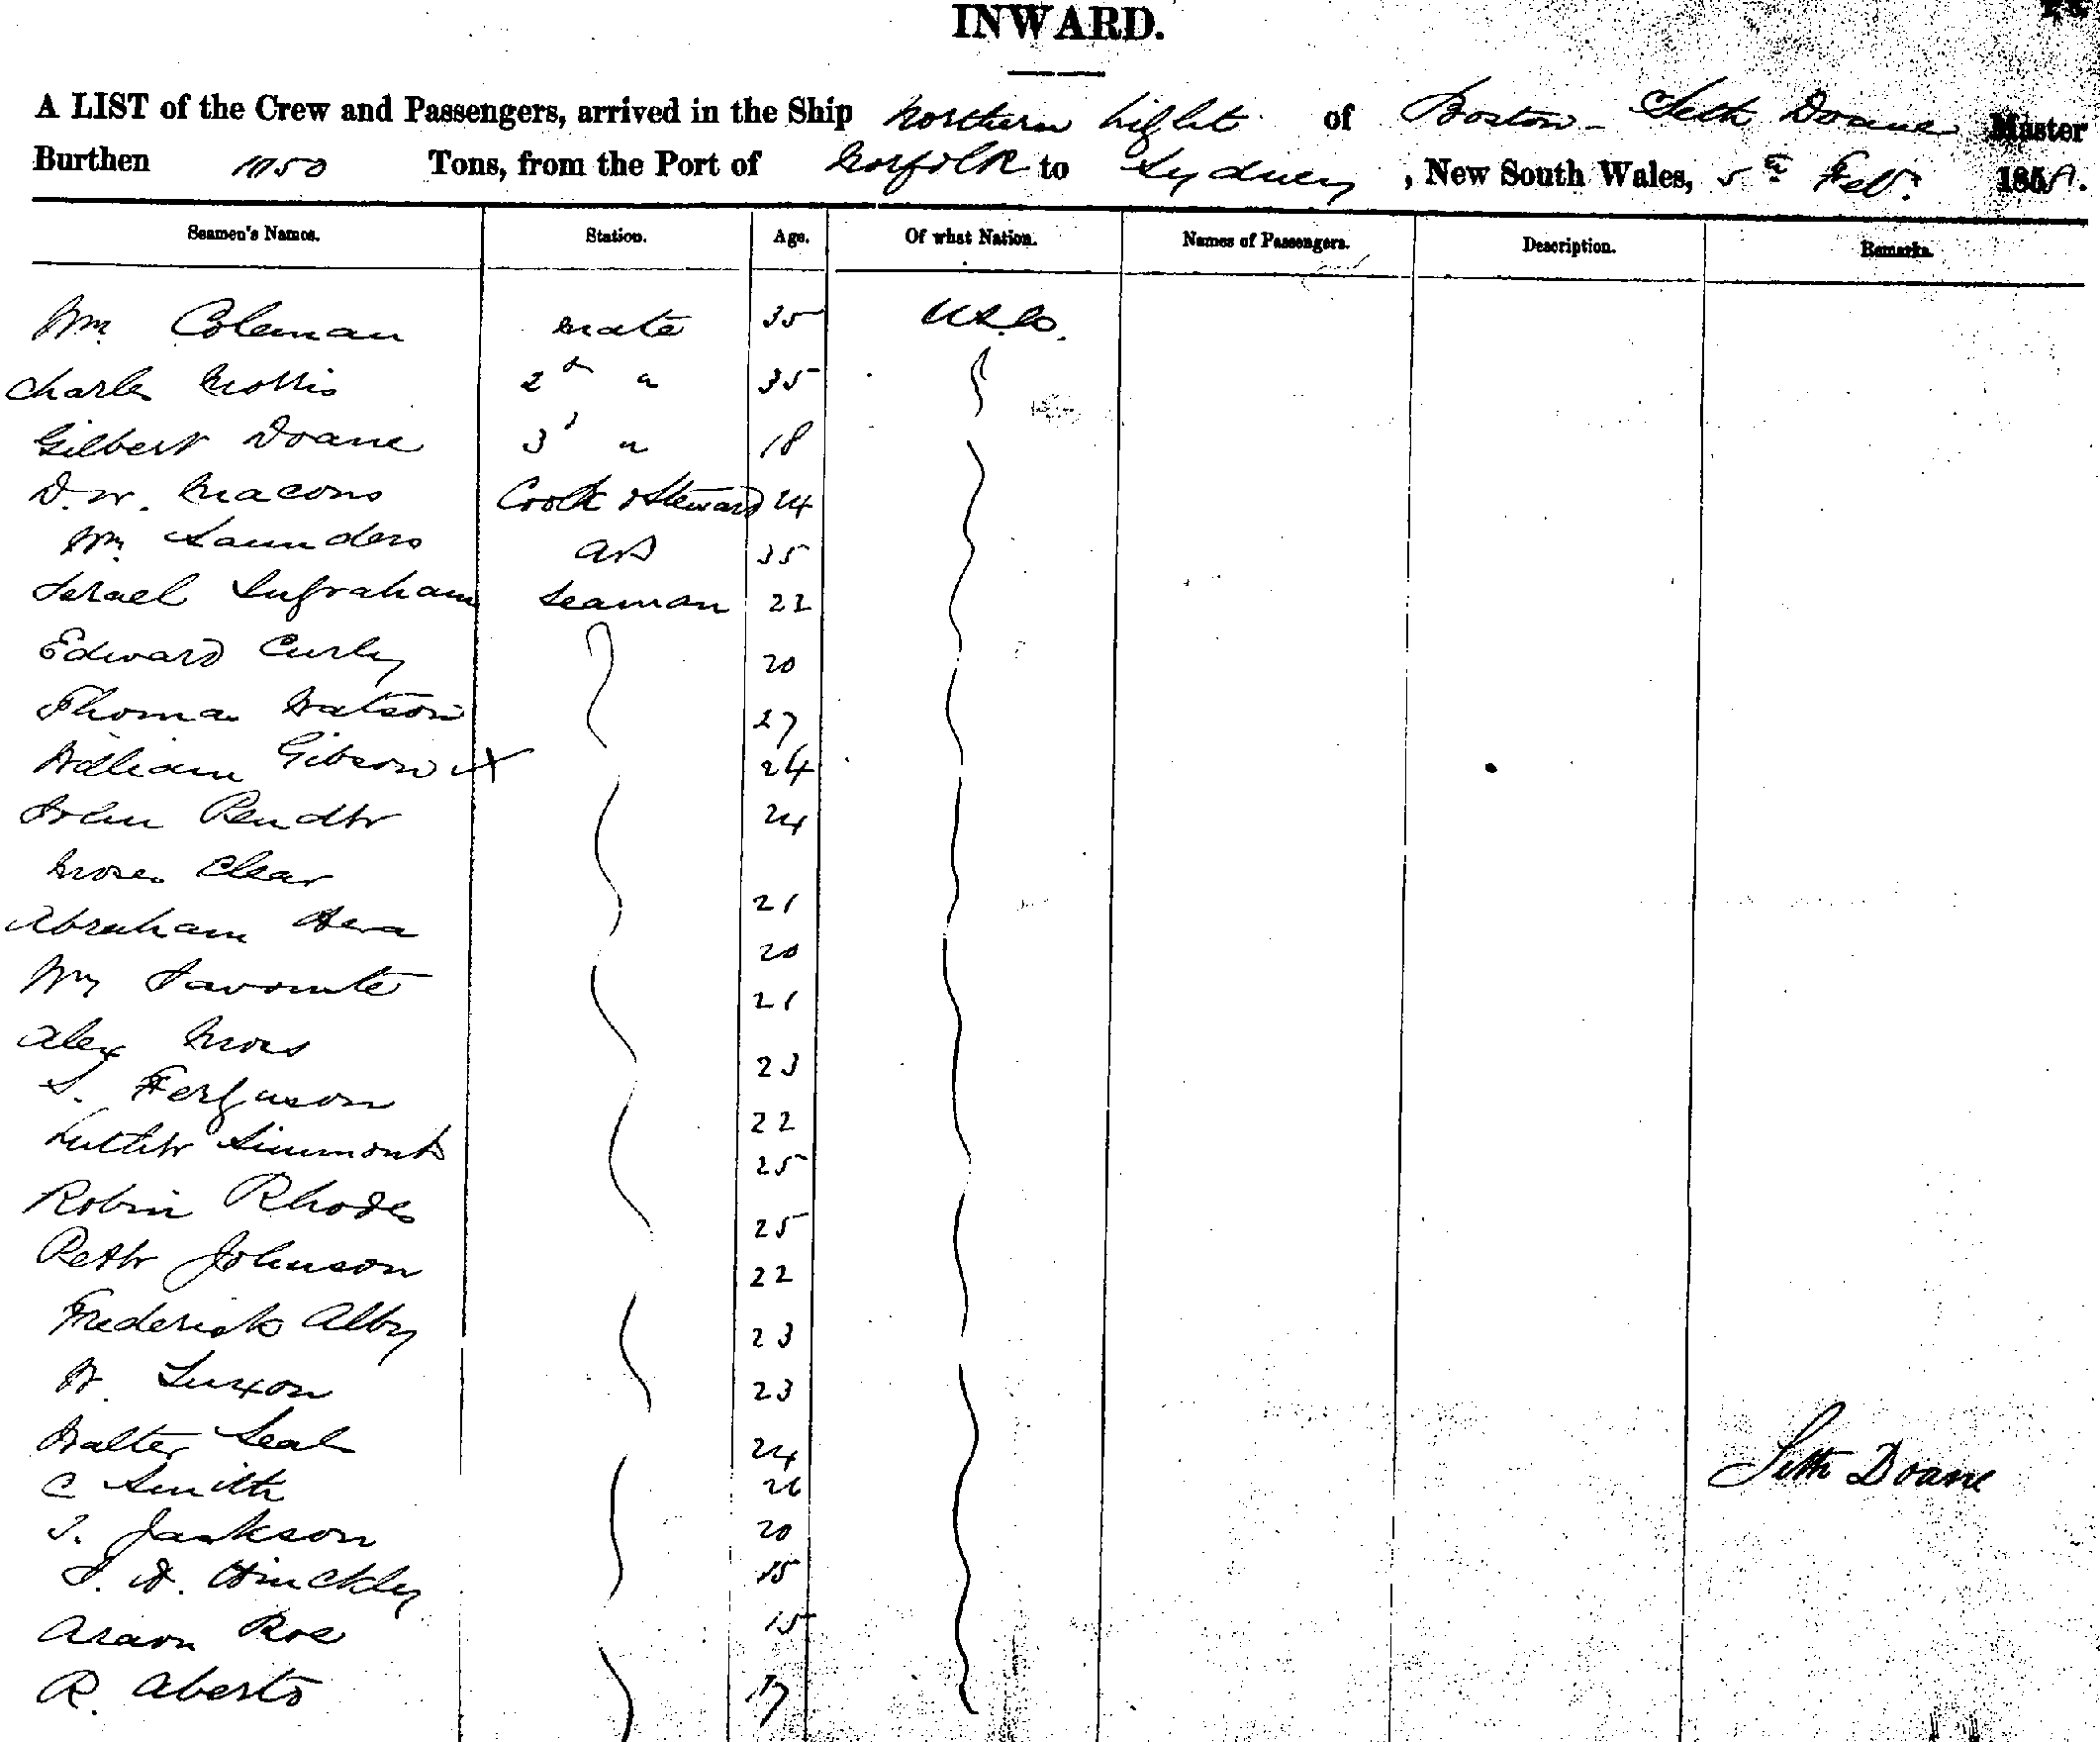 INWARD.
A LIST of the Crew and Passengers, arrived in the Ship Northern Light of Boston - Seth Doane Master
Burthen Tons, from the Port of Norfolk to Sydney, New South Wales, 5th Feb. 185
Seamen's Names. Station. Age. Of what Nation. Names of Passengers. Description. Remarks.
Wm Coleman Mate 35
Charles Morris 2d " 35
Gilbert Doane 3d " 18
D. W. Macons Cook & Steward 24
Wm Saunders AB 35
Israel Ingraham Seaman 22
Edward Curley 20
Thomas Watson 27
William Gibson X 24
John 24
Moses Clear 21
Abraham 20
Wm Favourite 21
Alex Moss 23
S. Ferguson 22
Luther Simmonds 25
Robin Rhodes 25
Peter Johnson 22
Frederick Alby 23
W. Luxon 23
Walter Seal 24
Seth Doane
C Smith 26
J. Jackson 20
Hinckley 15
Araon Roe 15
R. Aberts 17